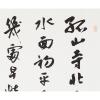 孤山寺北
水面初平
幾處早